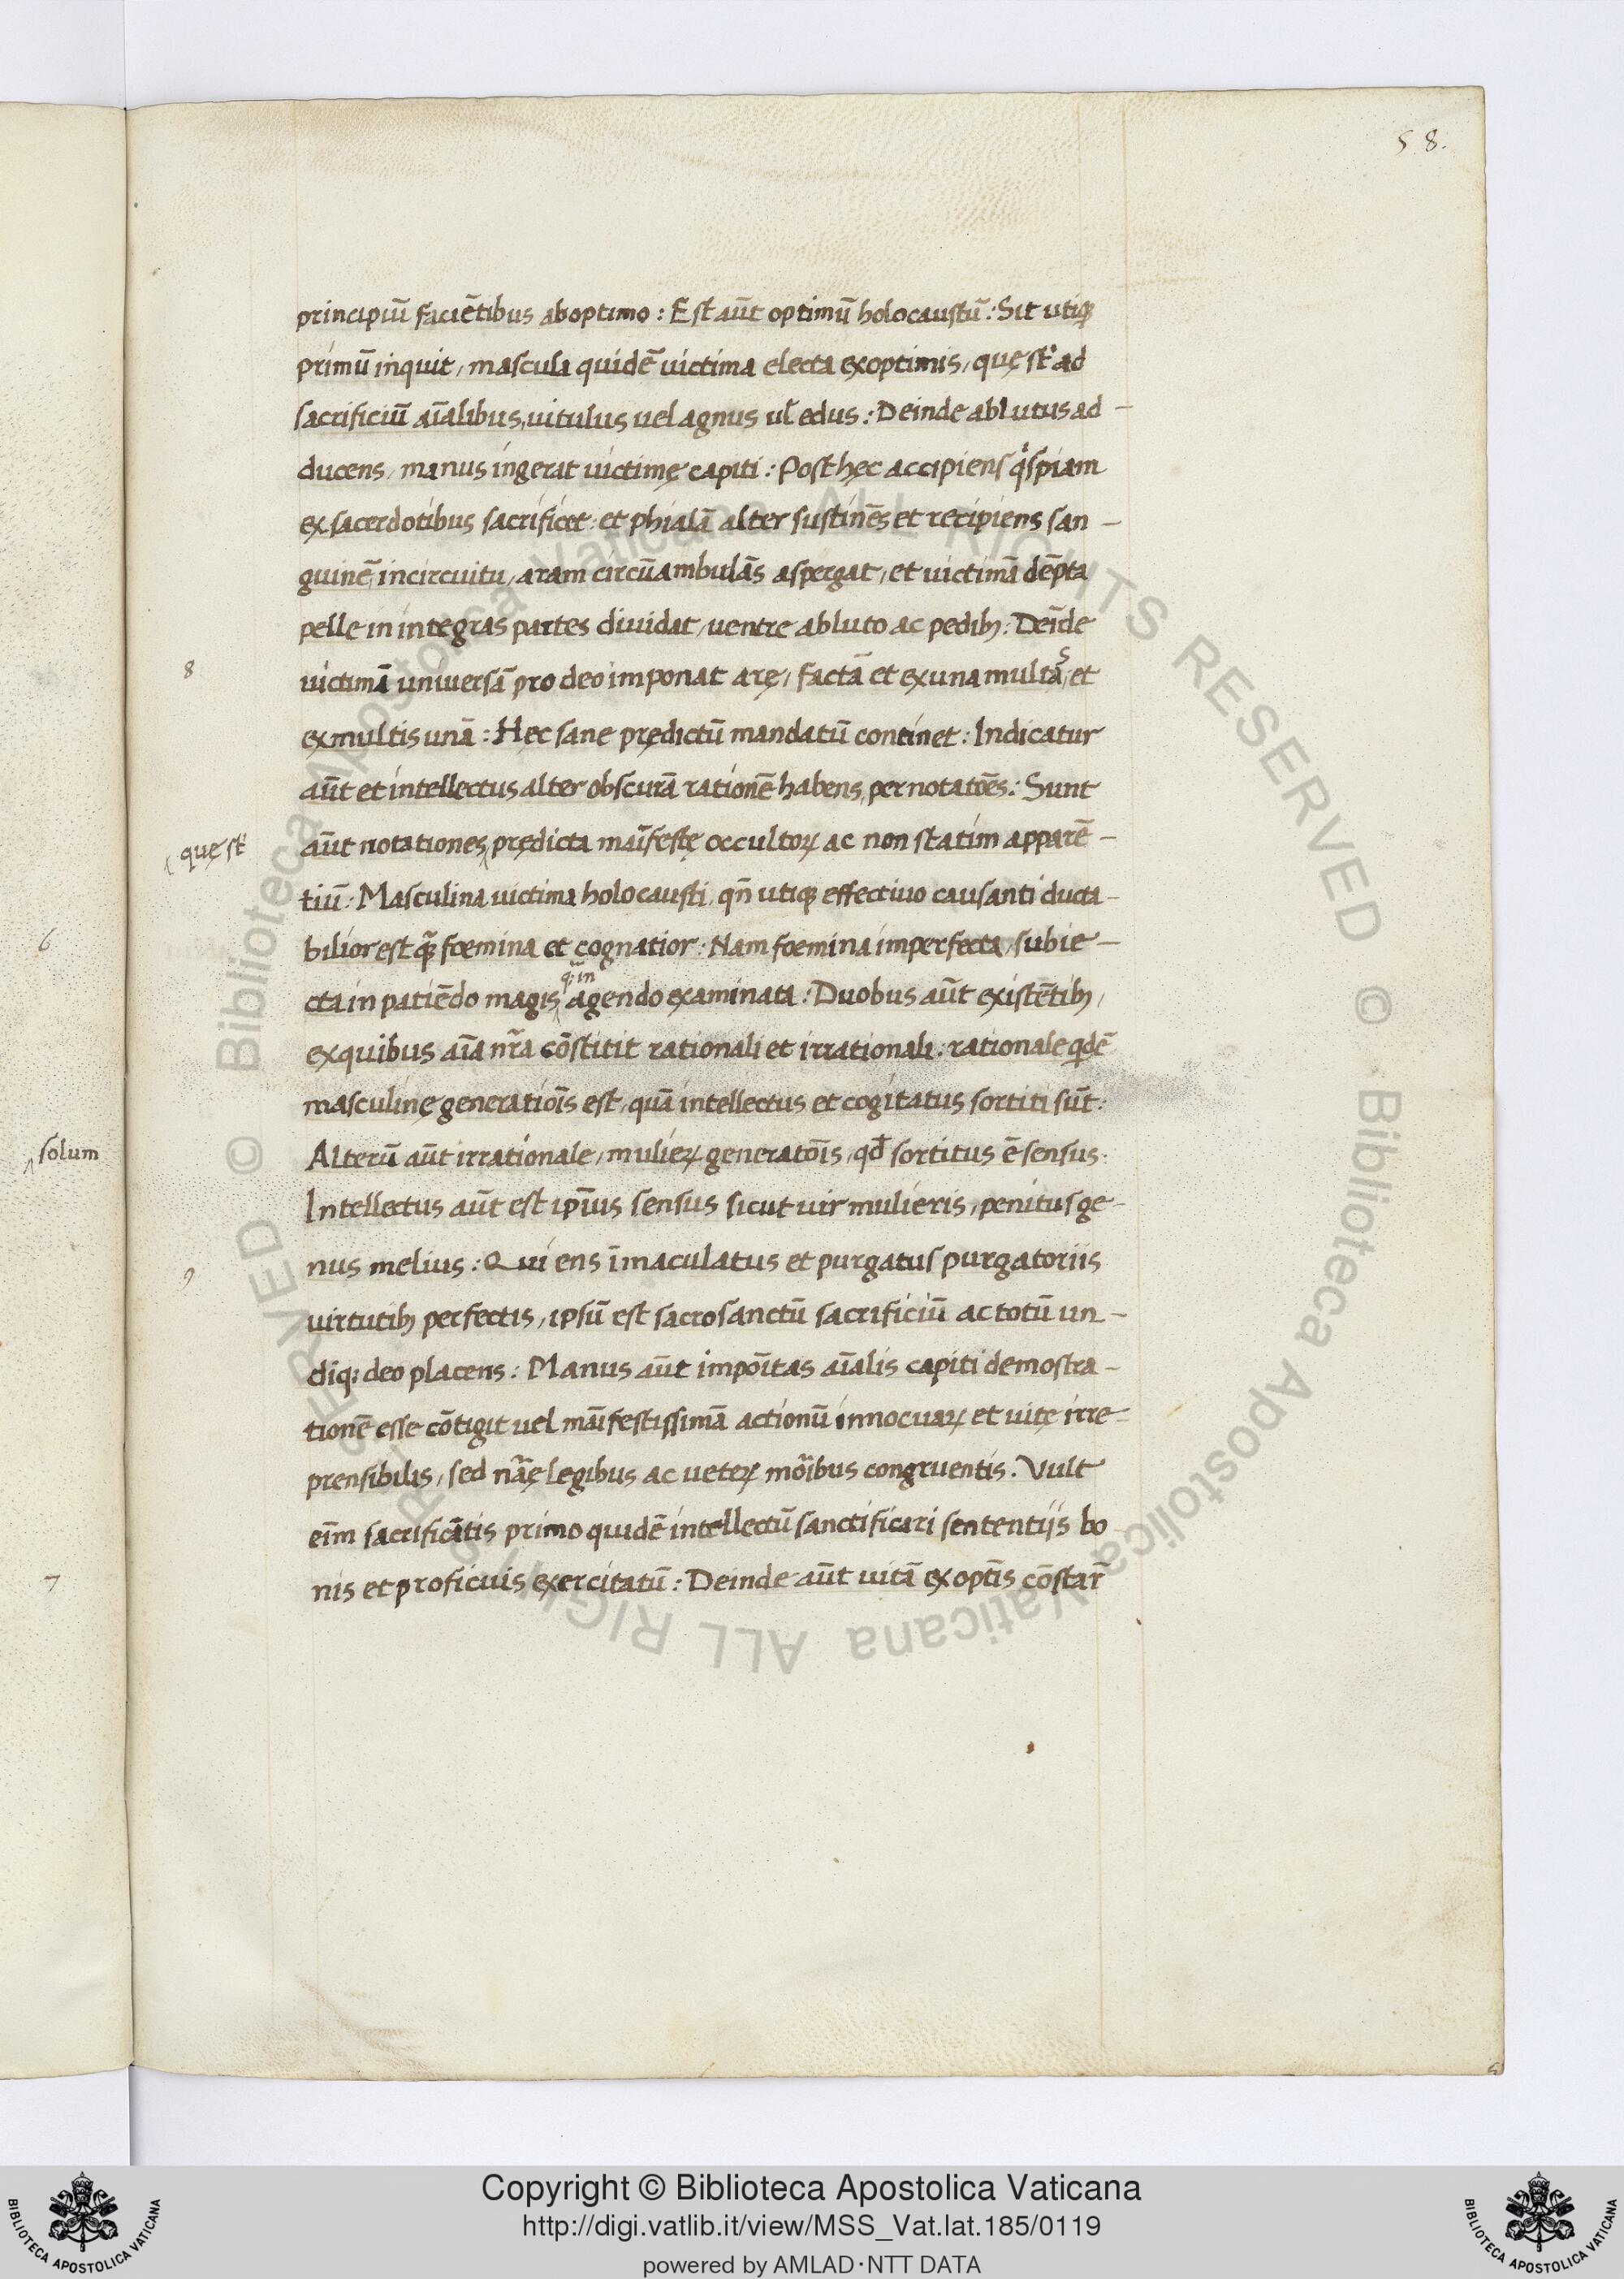 58.
principiū faciētibus ab optimo : Est aūt optimū holocaustū : Sit utiqꝫ
primū inquit, mascula quidē victima electa ex optimis, quę sūt ad
sacrificiū aīalibus, vitulus vel agnus ul̄ edus : Deinde ablutus ad-
ducens, manus ingerat victimę capiti : Post hęc accipiens qͥspiam
ex sacerdotibus sacrificet : et phialā alter sustinēs et recipiens san-
guinē, in circuitu, aram circūambulās aspergat, et victimā dēpta
pelle in integras partes dividat, ventre abluto ac pedibꝫ : Deīde
8
victimā universā pro deo imponat arę, factā et ex una multas, et
ex multis unā : Hęc sane prędictū mandatū continet : Indicatur
aūt et intellectus alter obscurā rationē habens, per notatōes : Sunt
quę sūt
aūt notationes, prędicta maīfestę occultoꝝ ac non statim apparē-
tiū : Masculina victima holocausti, qn̄ utiqꝫ effectivo causanti ducta-
6
bilior est qꝫ̄ foemina et cognatior : Nam foemina imperfecta, subie-
q̄ in
cta in patiēdo magis agendo examinata : Duobus aūt existētibꝫ,
ex quibus aīa nr̄a cōstitit rationali et irrationali : rationale qͥdē
masculinę generatiōis est, quā intellectus et cogitatus sortiti sūt :
solum
Alterū aūt irrationale, mulieꝝ generatōis, qd̄ sortitus ē sensus :
Intellectus aūt est ipīus sensus sicut vir mulieris, penitus ge-
9
nus melius : Qui ens īmaculatus et purgatus purgatoriis
virtutibꝫ perfectis, ipsū est sacrosanctū sacrificiū ac totū un-
diqꝫ deo placens : Manus aūt impoītas aīalis capiti demostra-
tionē esse cōtigit vel maīfestissimā actionū innocuaꝝ et vitę irre-
prensibilis, sed nāę legibus ac veteꝝ moībus congruentis. Vult
eīm sacrificātis primo quidē intellectū sanctificari sententijs bo
7
nis et proficuis exercitatū : Deinde aūt vitā ex optīs cōstar̄
Copyright © Biblioteca Apostolica Vaticana
http://digi.vatlib.it/view/MSS_Vat.lat.185/0119
powered by AMLAD·NTT DATA
BIBLIOTECA APOSTOLICA VATICANA
BIBLIOTECA APOSTOLICA VATICANA
© Biblioteca Apostolica Vaticana ALL RIGHTS RESERVED © Biblioteca Apostolica Vaticana ALL RIGHTS RESERVED